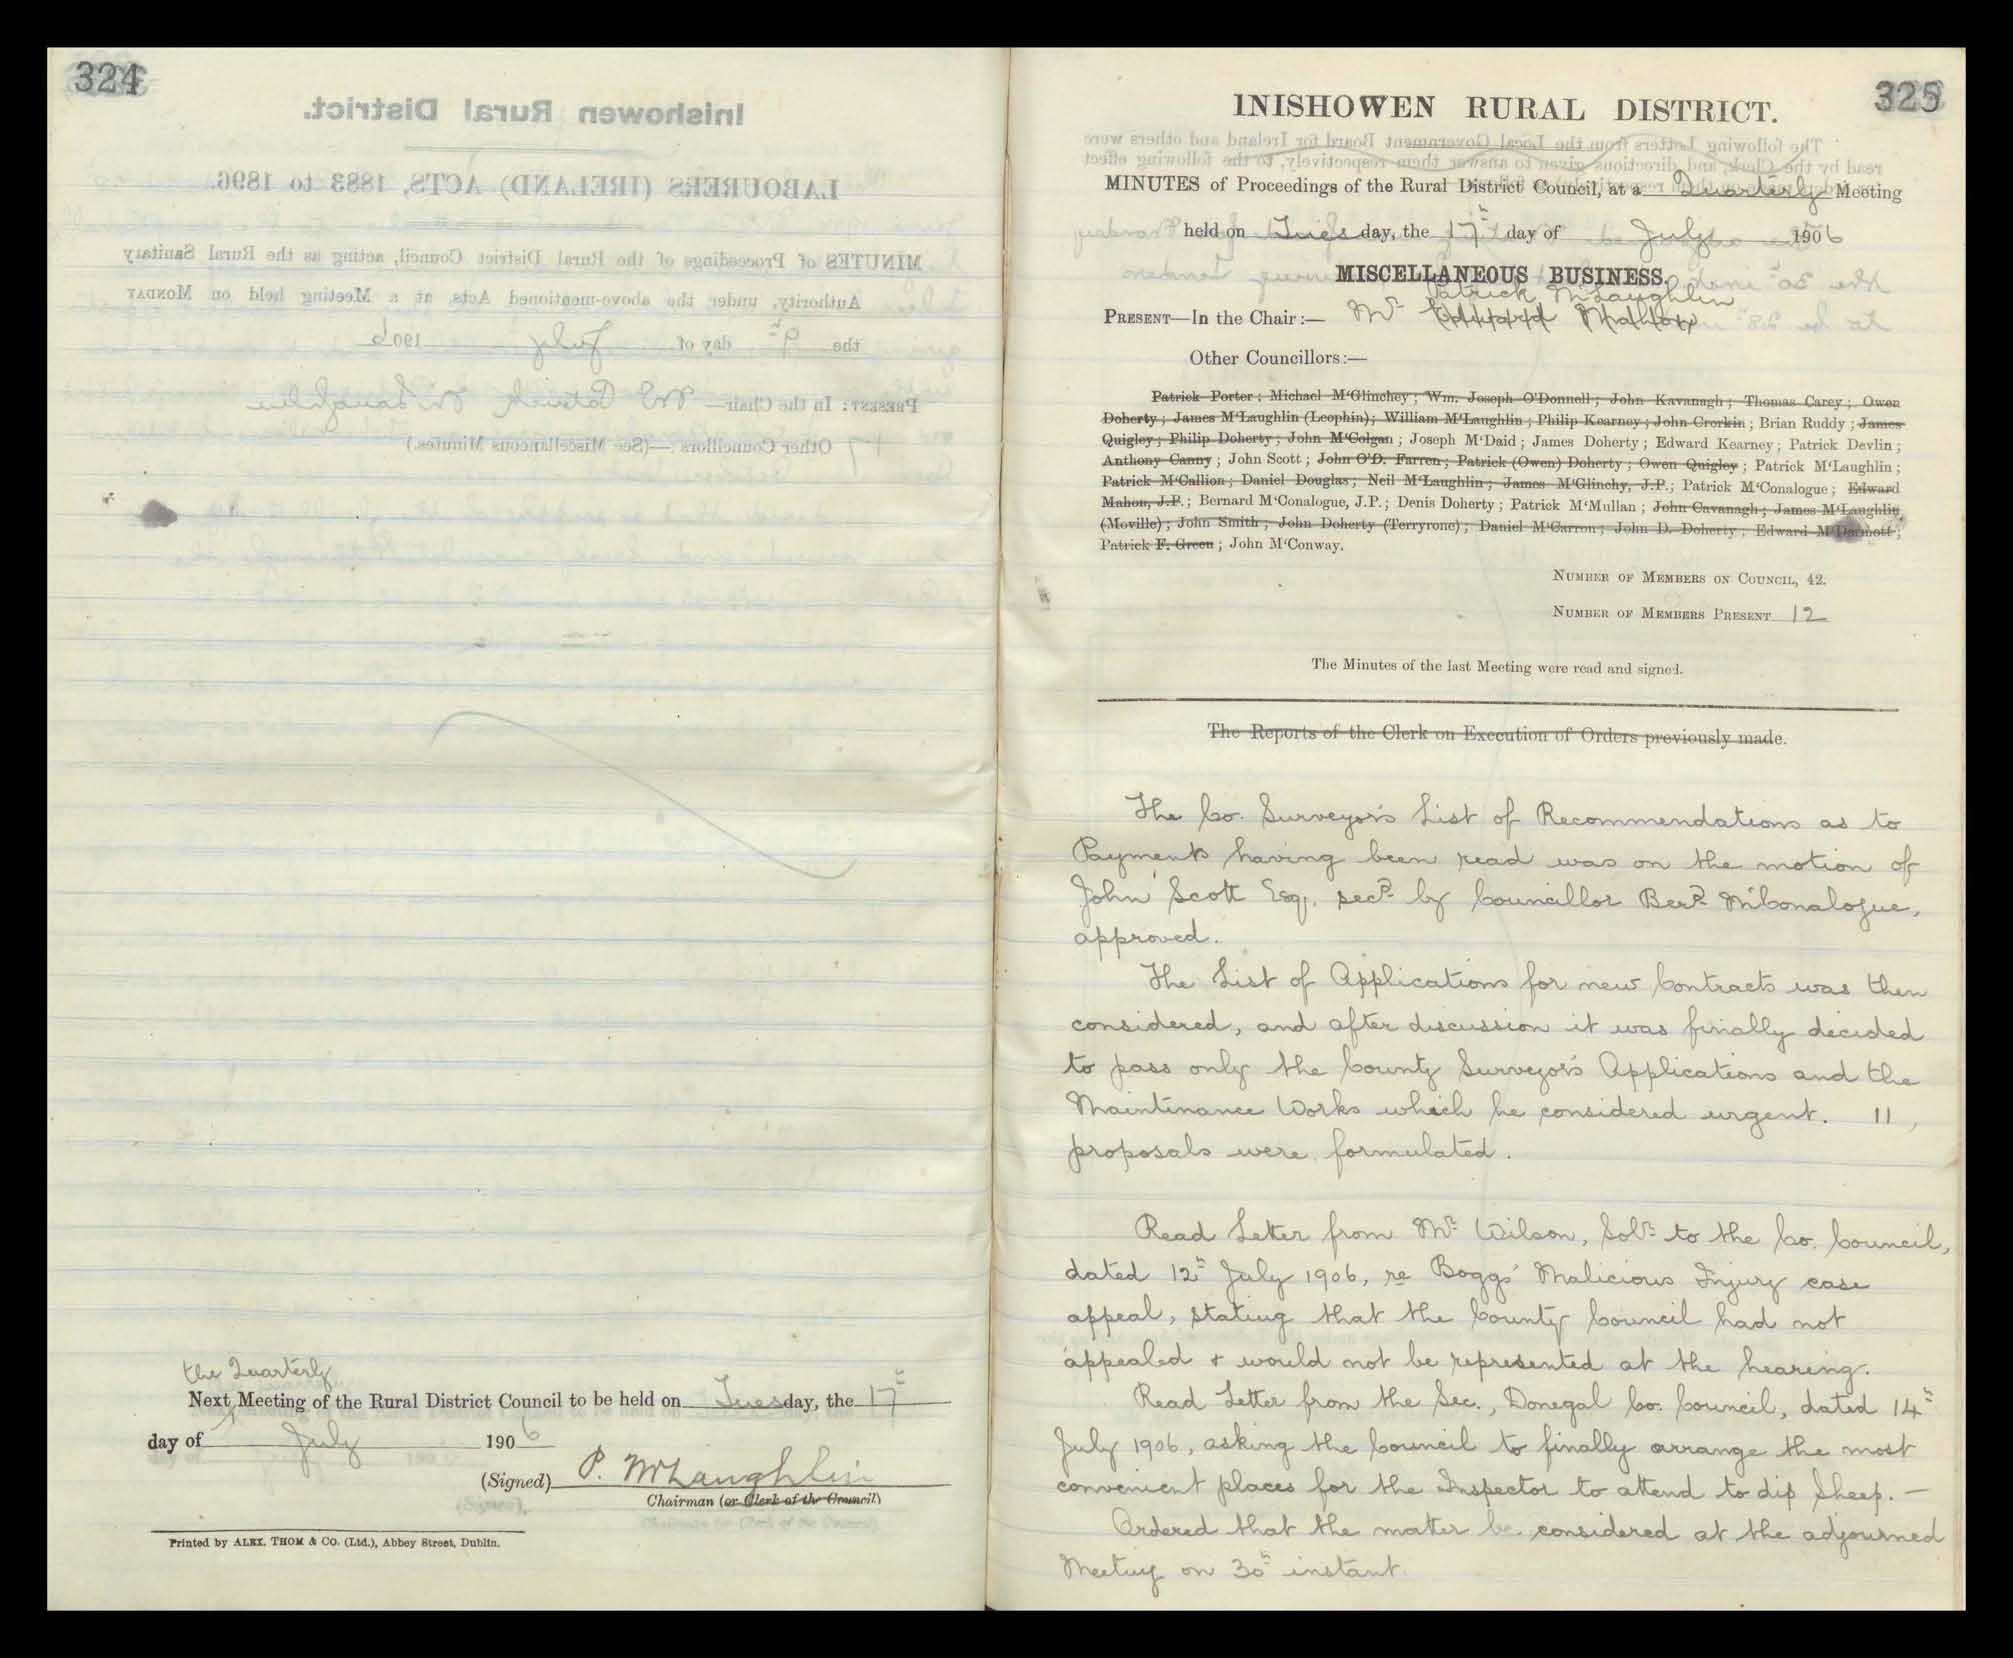 324
the Quarterly
Next Meeting of the Rural District Council to be held on Tuesday, the 17th
day of July 1906
(Signed) P. McLaughlin
Chairman (or Clerk of the Council)
Printed by ALEX. THOM & CO. (Ltd.), Abbey Street, Dublin.
325
INISHOWEN RURAL DISTRICT.
MINUTES of Proceedings of the Rural District Council, at a Quarterly Meeting
held on Tuesday, the 17th day of July 1906
MISCELLANEOUS BUSINESS.
Patrick McLaughlin
PRESENT—In the Chair:— Mr Edward Mahon
Other Councillors:—
Patrick Porter; Michael M'Glinchey; Wm. Joseph O'Donnell; John Kavanagh; Thomas Carey; Owen
Doherty; James M'Laughlin (Leophin); William M'Laughlin; Philip Kearney; John Crorkin; Brian Ruddy; James
Quigley; Philip Doherty; John M'Colgan; Joseph M'Daid; James Doherty; Edward Kearney; Patrick Devlin;
Anthony Canny; John Scott; John O'D. Farren; Patrick (Owen) Doherty; Owen Quigley; Patrick M'Laughlin;
Patrick M'Callion; Daniel Douglas; Neil M'Laughlin; James M'Glinchy, J.P.; Patrick M'Conalogue; Edward
Mahon, J.P.; Bernard M'Conalogue, J.P.; Denis Doherty; Patrick M'Mullan; John Cavanagh; James M'Laughlin
(Moville); John Smith; John Doherty (Terryrone); Daniel M'Carron; John D. Doherty; Edward M'Dermott;
Patrick F. Green; John M'Conway.
NUMBER OF MEMBERS ON COUNCIL, 42.
NUMBER OF MEMBERS PRESENT 12
The Minutes of the last Meeting were read and signed.
The Reports of the Clerk on Execution of Orders previously made.
The Co. Surveyor's List of Recommendations as to
Payments having been read was on the motion of
John Scott Esq. secd. by Councillor Berd. McConalogue,
approved.
The List of Applications for new Contracts was then
considered, and after discussion it was finally decided
to pass only the County Surveyor's Applications and the
Maintinance Works which he considered urgent. 11
proposals were formulated.
Read Letter from Mr Wilson, Solr. to the Co. Council,
dated 12th July 1906, re Boggs' Malicious Injury case
appeal, stating that the County Council had not
appealed & would not be represented at the hearing.
Read Letter from the Sec., Donegal Co. Council, dated 14th
July 1906, asking the Council to finally arrange the most
convenient places for the Inspector to attend to dip Sheep. —
Ordered that the matter be considered at the adjourned
Meeting on 30th instant.